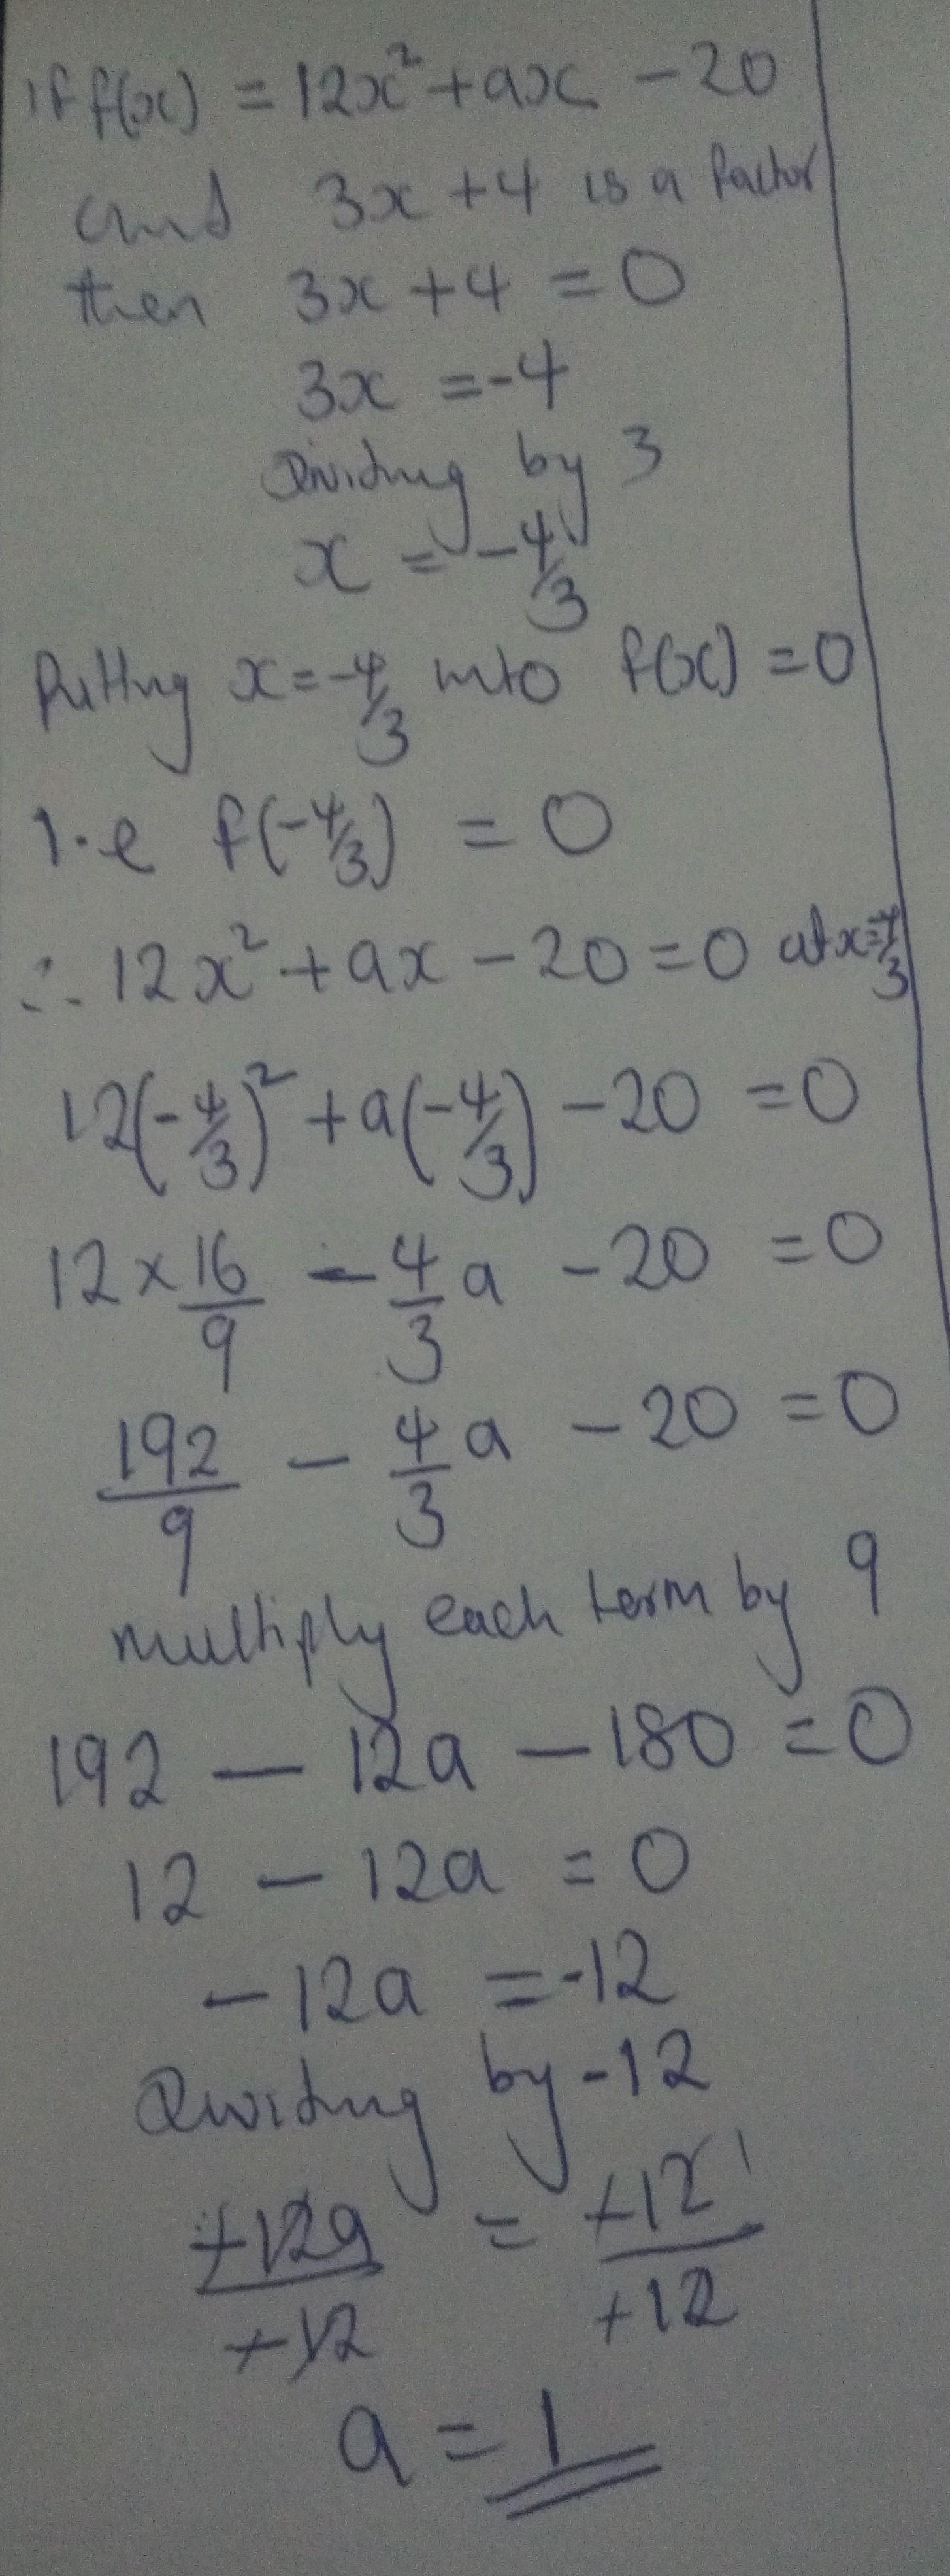 If f(x) = 12x² + ax - 20
and 3x + 4 is a factor
then 3x + 4 = 0
3x = -4
Dividing by 3
x = -4/3
Putting x = -4/3 into f(x) = 0
i.e f(-4/3) = 0
∴ 12x² + ax - 20 = 0 at x = -4/3
12(-4/3)² + a(-4/3) - 20 = 0
12 × 16/9 - 4/3 a - 20 = 0
192/9 - 4/3 a - 20 = 0
multiply each term by 9
192 - 12a - 180 = 0
12 - 12a = 0
-12a = -12
Dividing by -12
+12a/+12 = +12/+12 1
a = 1